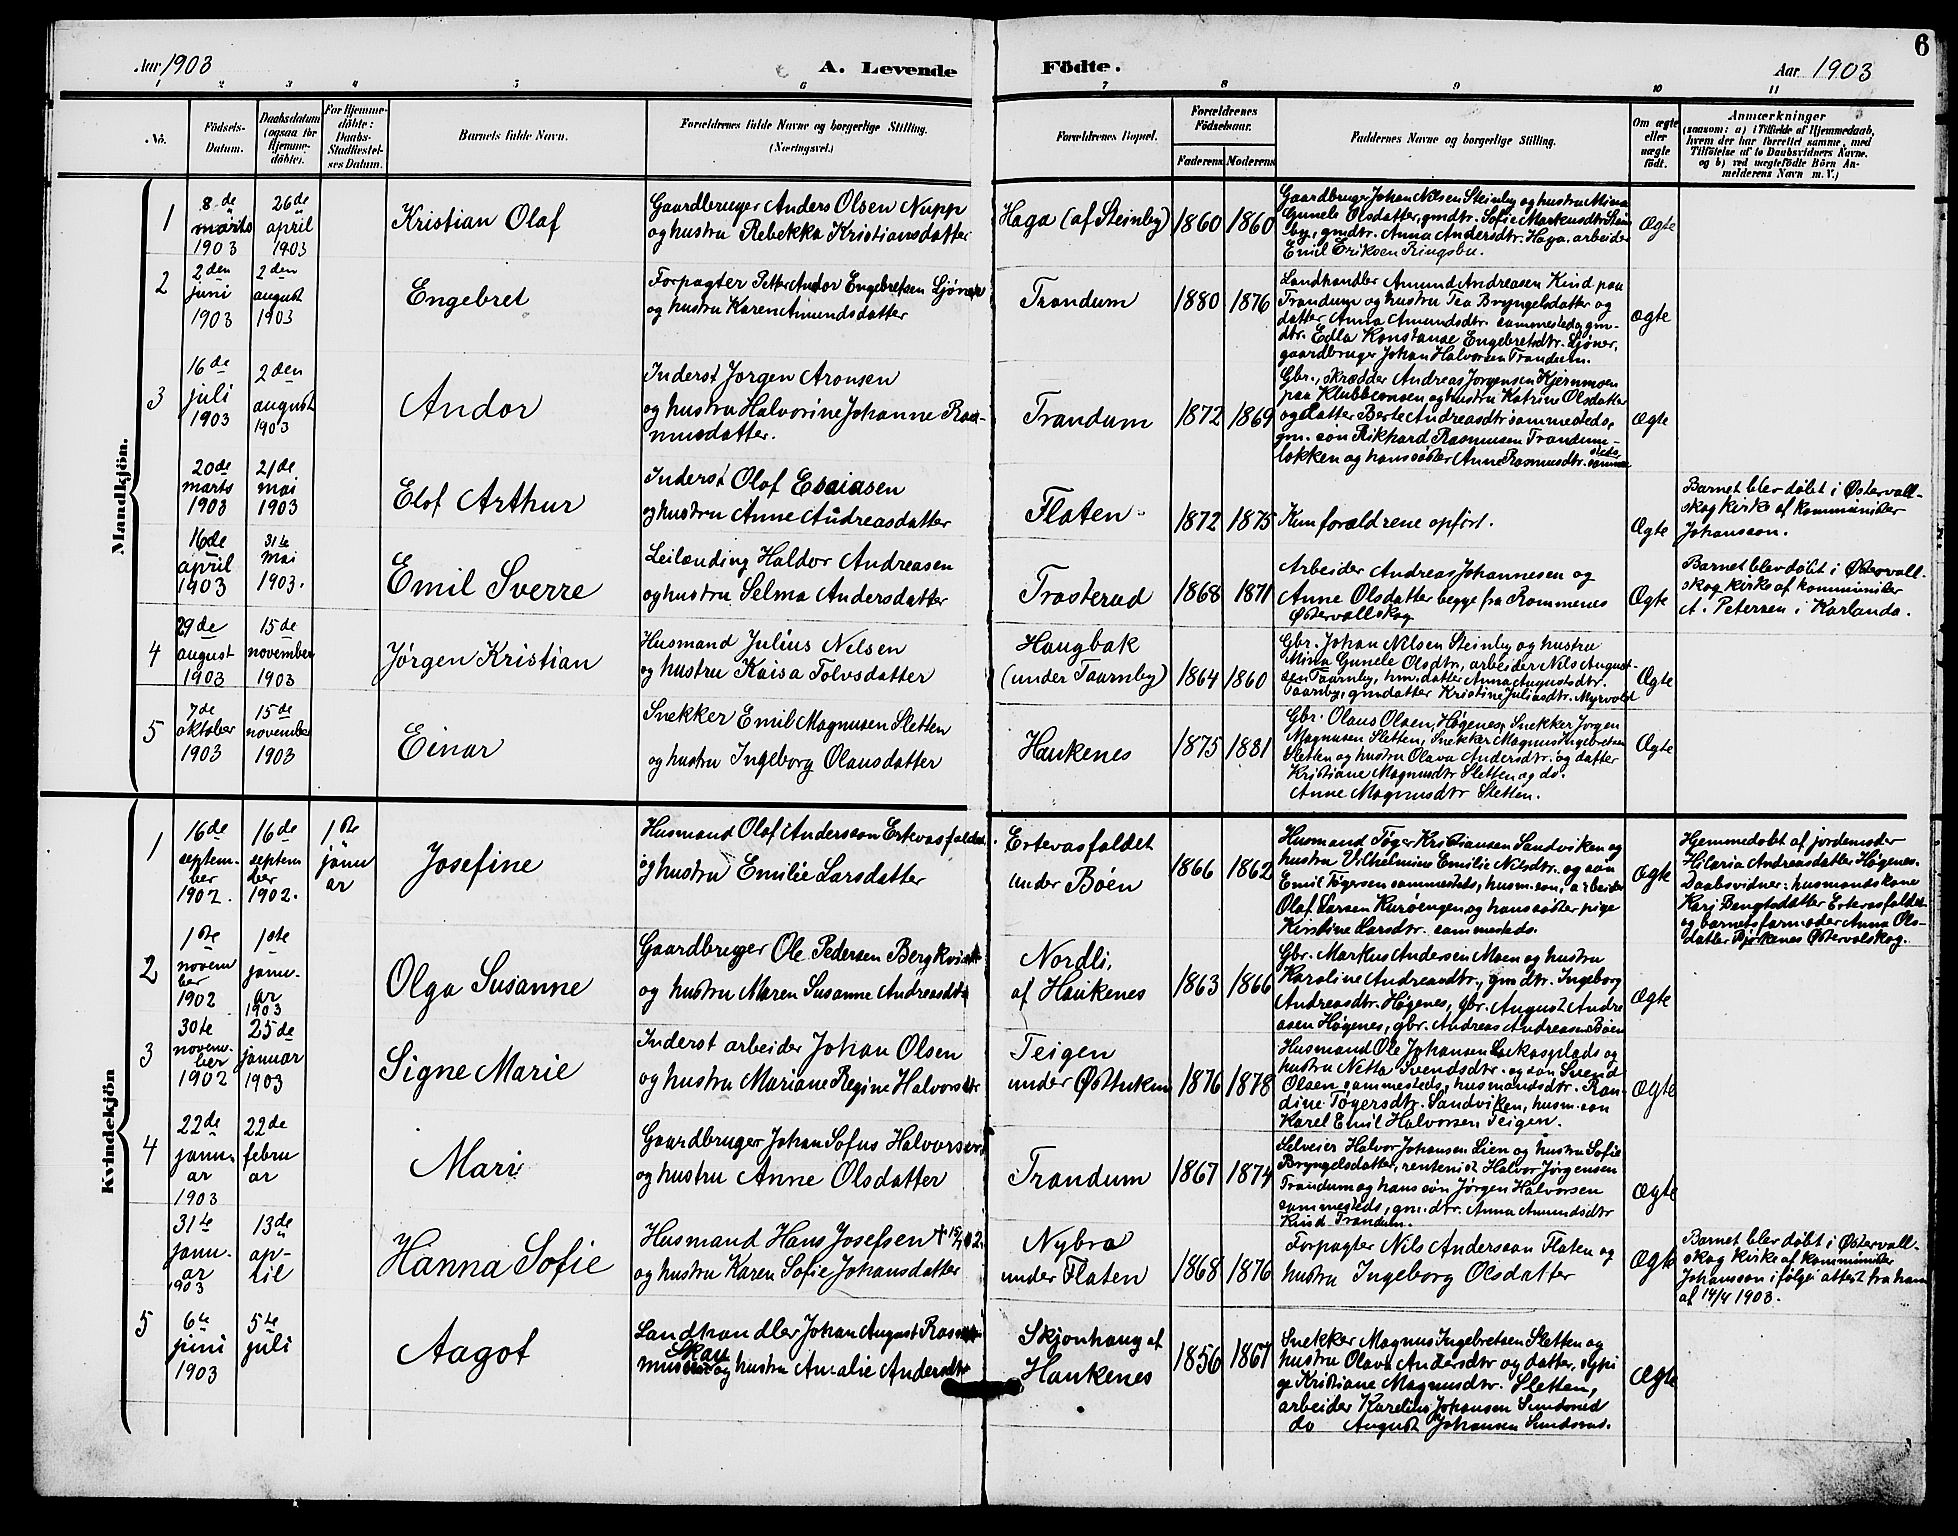 6
Aar 1903
A. Levende Fødte.
Aar 1903
1 2 3 4 5 6 7 8 9 10 11
No.
Födsels-Datum.
Daabsdatum (ogsaa for Hjemme-döbte).
For Hjemme-döbte: Daabs-Stadfæstelses Datum.
Barnets fulde Navn.
Forældrenes fulde Navne og borgerlige Stilling. (Næringsvei.)
Forældrenes Bopæl.
Forældrenes Födselsaar.
Faderens Moderens
Faddernes Navne og borgerlige Stilling.
Om ægte eller uægte født.
Anmærkninger
(saasom: a) i Tilfælde af Hjemmedaab, hvem der har forrettet samme, med Tilföielse af to Daabsvidners Navne, og b) ved uægtefödte Börn Anmelderens Navn m. V.)
Mandkjön.
1
8de marts 1903
26de april 1903
Kristian Olaf
Gaardbruger Anders Olsen Nupp
og hustru Rebekka Kristiansdatter
Haga (af Steinby)
1860 1860
Gaardbruger Johan Nilsen Steinby og hustru Mina
Gunele Olsdatter, gmdtr. Sofie Markusdtr. Stein
by, gmdtr. Anna Andersdtr. Haga, arbeider
Emil Eriksen Ringsbu.
Ægte
2
2den juni 1903
2den august 1903
Engebret
Forpagter Petter Andor Engebretsen Sjöner
og hustru Karen Amundsdatter
Trandum
1880 1876
Landhandler Amund Andreasen Kind paa
Trandum og hustru Tea Bryngelsdatter og
datter Anna Amundsdtr. sammesteds, gm-
dtr. Edla Konstanse Engebretsdtr. Sjöner,
gaardbruger Johan Halvorsen Trandum.
ægte
3
16de juli 1903
2den august 1903
Andor
Inderst Jørgen Aronsen
og hustru Halvorine Johanne Ras-
musdatter.
Trandum
1872 1869
Gbr., skrædder Andreas Jørgensen Kjernmoen
paa Klubbeonsen og hustru Katrine Olsdatter
og datter Berte Andreasdtr. sammesteds,
gm. søn Rikhard Rasmussen Trandum-
løkken og hans søster Anne Rasmusdtr. samme
steds
Ægte
20de marts 1903
21de mai 1903
Elof Arthur
Inderst Olof Esaiasen
og hustru Anne Andreasdatter
Flaten
1872 1875
Kun forældrene opført.
Ægte
Barnet blev døbt i Østervall-
skog kirke af komminister
Johansson.
16de april 1903
31te mai 1903.
Emil Sverre
Leilænding Haldor Andreasen
og hustru Selma Andersdatter
Trosterud
1868 1871
Arbeider Andreas Johannesen og
Anne Olsdatter begge fra Rommenes
Østervallskog
Ægte
Barnet blev døbt i Østervall-
skog kirke af komminister
A. Petersen i Karlanda.
4
29de august 1903
15de november 1903
Jørgen Kristian
Husmand Julius Nilsen
og hustru Kaisa Tolvsdatter
Haugbak
(under Taarnby)
1864 1860
Gbr. Johan Nilsen Steinby og hustru
Mina Gunele Olsdtr., arbeider Nils August-
sen Taarnby, hm. datter Anna Augustsdtr.
Taarnby, gmdatter Kristine Juliusdtr. Myrvold
Ægte
5
7de oktober 1903
15de november 1903
Einar
Snekker Emil Magnusen Sletten
og hustru Ingeborg Olausdatter
Haukenes
1875 1881
Gbr. Olaus Olsen Høgenes, Snekker Jørgen
Magnusen Sletten, Snekker Magnus Ingebretsen
Sletten og hustru Olava Andersdtr. og datter
Kristiane Magnusdtr. Sletten og do.
Anne Magnusdtr. Sletten.
Ægte
Kvindekjön
1
16de september 1902.
16de september 1902.
1ste januar
Josefine
Husmand Olof Andersson Ertevasfaldet
og hustru Emilie Larsdatter
Ertevasfaldet
under Böen
1866 1862
Husmand Töger Kristiansen Sandviken og
hustru Vilhelmine Emilie Nilsdtr. og søn
Emil Tögersen sammesteds, husm. søn, arbeider
Olaf Larsen Kuröengen og hans søster pige
Kirstine Larsdtr. sammesteds.
Ægte
Hjemmedøbt af jordemoder
Hilaria Andreasdatter Høgenes.
Daabsvidner: husmandskone
Kari Bengtsdatter Ertevasfaldet
og barnets farmoder Anna Ols-
datter Bjørkenes Østervalskog.
2
1ste november 1902
1ste januar 1903
Olga Susanne
Gaardbruger Ole Pedersen Bergkvist
og hustru Maren Susanne Andreasdtr
Nordli,
af Haukenes
1863 1866
Gbr. Markus Andersen Moen og hustru
Karoline Andreasdtr., gmdtr. Ingeborg
Andreasdtr. Høgenes, gbr. August Andre
asen Høgenes, gbr. Andreas Andreasen Böen
Ægte
3
30te november 1902
25de januar 1903
Signe Marie
Inderst arbeider Johan Olsen
og hustru Mariane Regine Halvorsdtr
Teigen
under Øst
1876 1878
Husmand Ole Johansen Lokasplads og
hustru Netta Svendsdtr. og søn Svend
Olsen sammesteds, husmandsdtr. Ran-
dine Tögersdtr. Sandviken, husm. søn
Karel Emil Halvorsen Teigen.
Ægte
4
22de januar 1903
22de februar
Mari
Gaardbruger Johan Sofus Halvorsen
og hustru Anne Olsdatter
Trandum
1867 1874
Selveier Halvor Johansen Lien og hustru Sofie
Bryngelsdatter, rentenist Halvor Jørgensen
Trandum og hans søn Jørgen Halvorsen
sammesteds, gm. dtr. Anna Amundsdtr
Kind Trandum.
Ægte
31te januar 1903
13de april
Hanna Sofie
Husmand Hans Josefsen
og hustru Karen Sofie Johansdatter
Nybro
under Flaten
1868 1876
Forpagter Nils Andersson Flaten og
hustru Ingeborg Olsdatter
Ægte
Barnet blev døbt i Østervall-
skog kirke af komminister
Johansson ifølge attest fra ham
af 14/4 1903.
5
6te juni 1903
5te juli
Aagot
Landhandler Johan August Ras
mussen Skau og hustru Amalie Andersdtr
Skjønhaug af
Haukenes
1856 1867
Snekker Magnus Ingebretsen Sletten og
hustru Olava Andersdtr og datter, sypi
ge Kristiane Magnusdtr. Sletten,
arbeider Karelius Johansen Sundsrud
do August Johansen Sundsrud.
Ægte